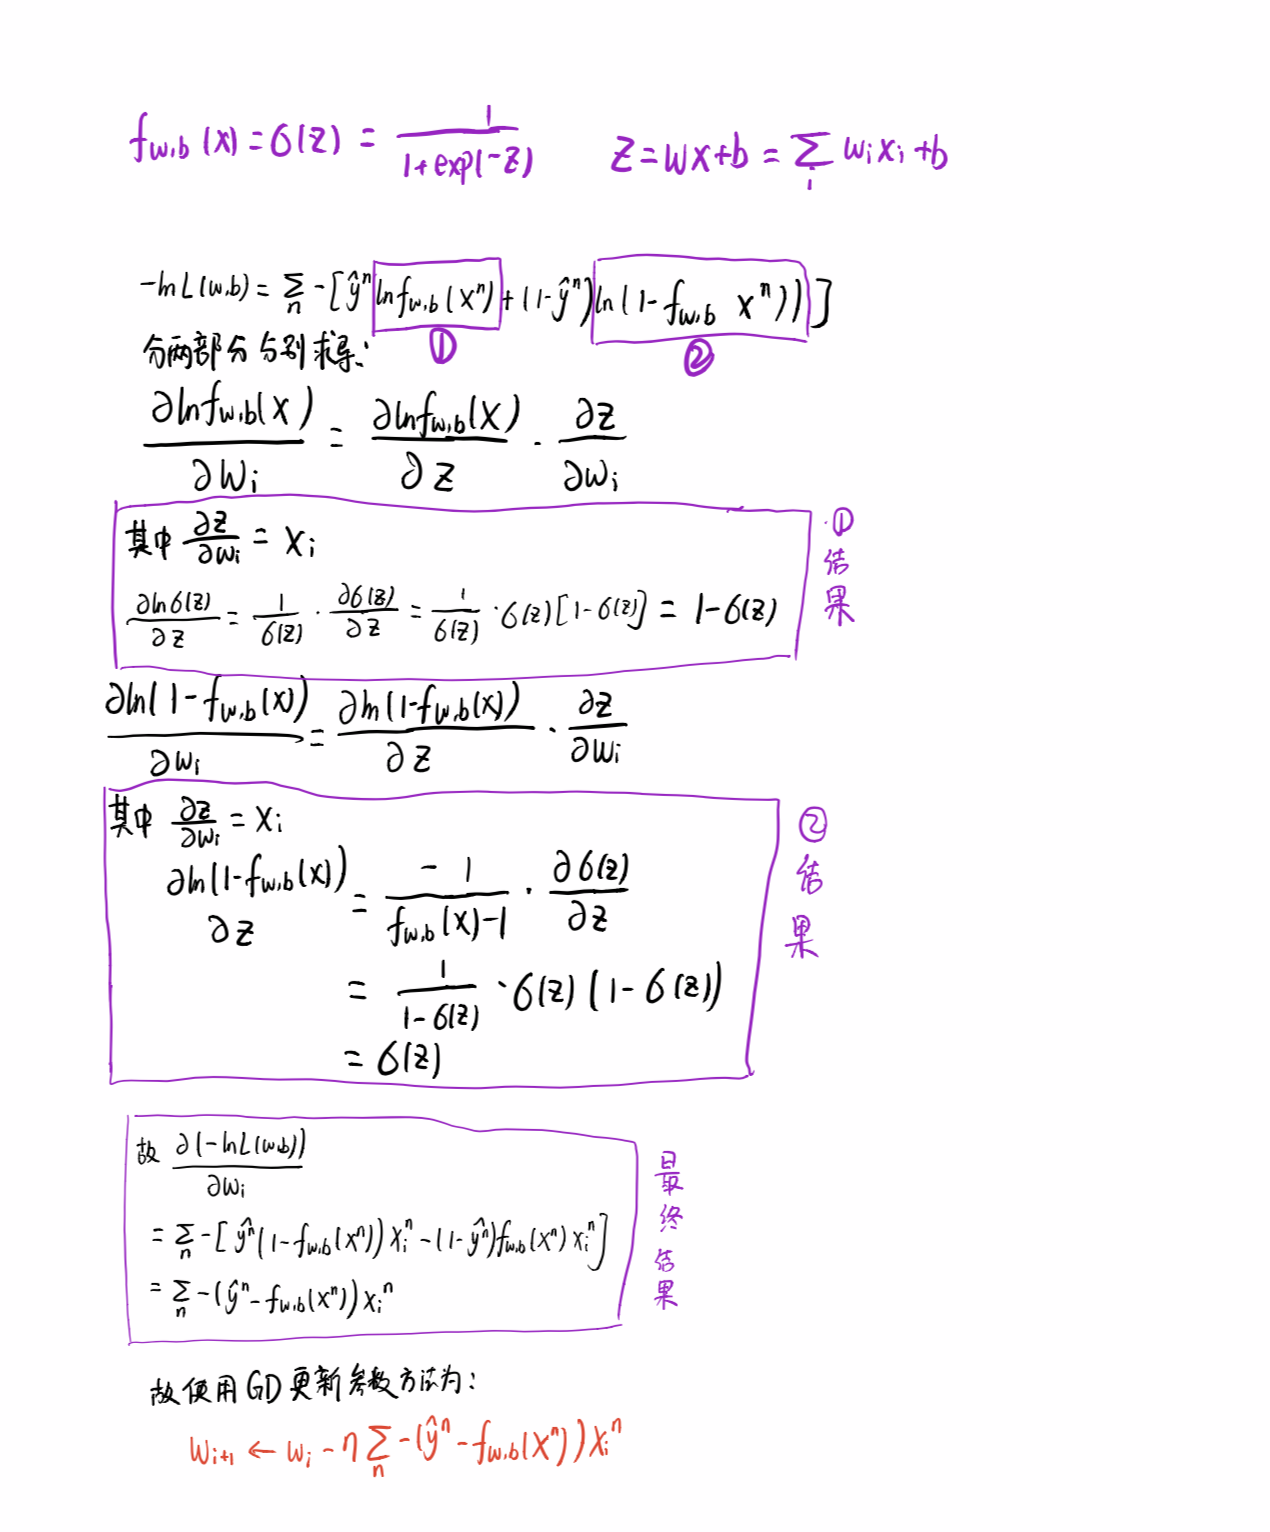 f_{w,b}(x) = σ(z) = 1/(1+exp(-z))    z = wx+b = ∑_i w_i x_i + b
-ln L(w,b) = ∑_n -[ŷ^n ln f_{w,b}(x^n) + (1-ŷ^n) ln(1-f_{w,b} x^n))]
① ②
分两部分分别求导:
∂ln f_{w,b}(x)/∂w_i = ∂ln f_{w,b}(x)/∂z · ∂z/∂w_i
其中 ∂z/∂w_i = x_i
∂ln σ(z)/∂z = 1/σ(z) · ∂σ(z)/∂z = 1/σ(z) · σ(z)[1-σ(z)] = 1-σ(z)
①结果
∂ln(1-f_{w,b}(x))/∂w_i = ∂ln(1-f_{w,b}(x))/∂z · ∂z/∂w_i
其中 ∂z/∂w_i = x_i
∂ln(1-f_{w,b}(x)) ∂z = -1/(f_{w,b}(x)-1) · ∂σ(z)/∂z
= 1/(1-σ(z)) · σ(z)(1-σ(z))
= σ(z)
②结果
故 ∂(-ln L(w,b))/∂w_i
= ∑_n -[ŷ^n(1-f_{w,b}(x^n)) x_i^n - (1-ŷ^n) f_{w,b}(x^n) x_i^n]
= ∑_n -(ŷ^n - f_{w,b}(x^n)) x_i^n
最终结果
故使用GD更新参数方法为:
w_{i+1} ← w_i - η ∑_n -(ŷ^n - f_{w,b}(x^n)) x_i^n